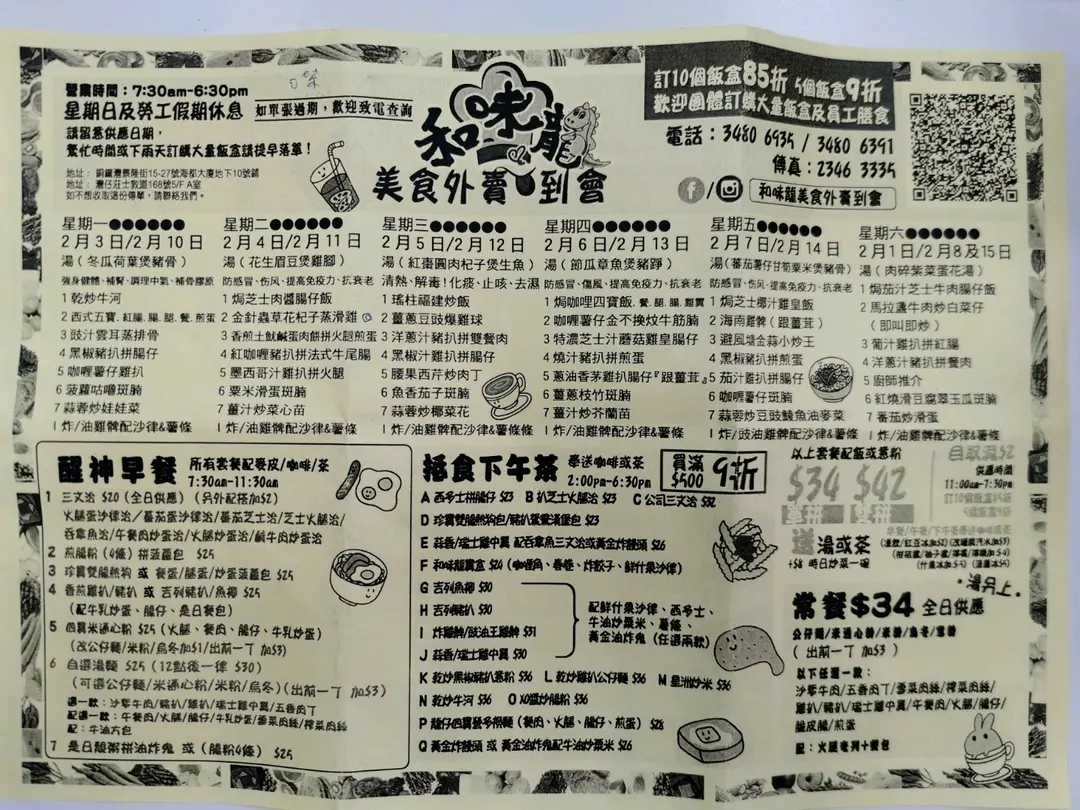 營業時間：7:30am-6:30pm
星期日及勞工假期休息
請留意供應日期，
繁忙時間或下雨天訂購大量飯盒請提早落單！
地址：銅鑼灣景隆街15-27號海都大廈地下10號鋪
地址：灣仔莊士敦道168號5/F A室
如不想收取這份傳單，請聯絡我們。
如單張過期，歡迎致電查詢
和味龍
美食外賣 到會
訂10個飯盒85折 5個飯盒9折
歡迎團體訂購大量飯盒及員工膳食
電話：3480 6935 / 3480 6391
傳真：2346 3335
和味龍美食外賣到會
星期一●●●●●●●
2月3日/2月10日
湯（冬瓜荷葉煲豬骨）
強身健體、補腎、調理中氣、補骨膠原
1 乾炒牛河
2 西式五寶，紅腸、腸、腿、餐、煎蛋
3 豉汁雲耳蒸排骨
4 黑椒豬扒拼腸仔
5 咖喱薯仔雞扒
6 菠蘿咕嚕斑腩
7 蒜蓉炒娃娃菜
l 炸/油雞髀配沙律&薯條
星期二●●●●●●●
2月4日/2月11日
湯（花生眉豆煲雞腳）
防感冒、伤风、提高免疫力、抗衰老
1 焗芝士肉醬腸仔飯
2 金針蟲草花杞子蒸滑雞
3 香煎土魷鹹蛋肉餅拼火腿煎蛋
4 紅咖喱豬扒拼法式牛尾腸
5 墨西哥汁雞扒拼火腿
6 粟米滑蛋斑腩
7 薑汁炒菜心苗
l 炸/油雞髀配沙律&薯條
星期三●●●●●●●
2月5日/2月12日
湯（紅棗圓肉杞子煲生魚）
清熱、解毒！化痰、止咳、去濕
1 瑤柱福建炒飯
2 薑蔥豆豉爆雞球
3 洋蔥汁豬扒拼雙餐肉
4 黑椒汁雞扒拼腸仔
5 腰果西芹炒肉丁
6 魚香茄子斑腩
7 蒜蓉炒椰菜花
l 炸/油雞髀配沙律&薯條
星期四●●●●●●●
2月6日/2月13日
湯（節瓜章魚煲豬踭）
防感冒、傷風、提高免疫力、抗衰老
1 焗咖喱四寶飯，餐，腿，腸，雞寶
2 咖喱薯仔金不換炆牛筋腩
3 特濃芝士汁蘑菇雞皇腸仔
4 燒汁豬扒拼煎蛋
5 蔥油香茅雞扒腸仔『跟薑茸』
6 薑蔥枝竹斑腩
7 薑汁炒芥蘭苗
l 炸/油雞髀配沙律&薯條
星期五●●●●●●
2月7日/2月14日
湯（蕃茄薯仔甘筍粟米煲豬骨）
防感冒、伤风、提高免疫力、抗衰老
1 焗芝士椰汁雞皇飯
2 海南雞髀（跟薑茸）
3 避風塘金蒜小炒王
4 黑椒豬扒拼煎蛋
5 茄汁雞扒拼腸仔
6 咖喱薯仔斑腩
7 蒜蓉炒豆豉鯪魚油麥菜
l 炸/豉油雞髀配沙律&薯條
星期六●●●●●●
2月1日/2月8及15日
湯（肉碎紫菜蛋花湯）
1 焗茄汁芝士牛肉腸仔飯
2 馬拉盞牛肉炒白菜仔
（即叫即炒）
3 葡汁雞扒拼紅腸
4 洋蔥汁豬扒拼餐肉
5 廚師推介
6 紅燒滑豆腐翠玉瓜斑腩
7 番茄炒滑蛋
l 炸/油雞髀配沙律&薯條
醒神早餐 所有套餐配麥皮/咖啡/茶
7:30am-11:30am
1 三文治 $20（全日供應）（另外配搭加$2）
火腿蛋沙律治/蕃茄蛋沙律治/蕃茄芝士治/芝士火腿治/
吞拿魚治/午餐肉炒蛋治/火腿炒蛋治/鹹牛肉炒蛋治
2 煎腸粉（4條）拼菠蘿包 $25
3 珍寶雙腸熱狗 或 餐蛋/腿蛋/炒蛋菠蘿包 $25
4 香煎雞扒/豬扒 或 吉列豬扒/魚柳 $25
（配牛乳炒蛋、腸仔、是日餐包）
5 四寶米通心粉 $25（火腿、餐肉、腸仔、牛乳炒蛋）
（改公仔麵/米粉/烏冬加$1/出前一丁 加$3）
6 自選湯麵 $25（12點後一律 $30）
（可選公仔麵/米通心粉/米粉/烏冬）（出前一丁 加$3）
選一款：沙嗲牛肉/豬扒/雞扒/瑞士雞中翼/五香肉丁
配選一款：午餐肉/火腿/腸仔/牛乳炒蛋/雪菜肉絲/榨菜肉絲
配：牛油方包
7 是日靚粥拼油炸鬼 或（腸粉4條） $25
抵食下午茶 奉送咖啡或茶
2:00pm-6:30pm
買滿
$500 9折
A 西多士拼腸仔 $23 B 扒芝士火腿治 $23 C 公司三文治 $32
D 珍寶雙腸熱狗包/豬扒鴛鴦漢堡包 $23
E 蒜香/瑞士雞中翼 配吞拿魚三文治或黃金炸饅頭 $26
F 和味龍寶盒 $24（咖喱角、春卷、炸餃子、鮮什果沙律）
G 吉列魚柳 $30
H 吉列豬扒 $30
I 炸雞髀/豉油王雞髀 $31
J 蒜香/瑞士雞中翼 $30
配鮮什果沙律、西多士、
牛油炒粟米、薯條、
黃金油炸鬼（任選兩款）
K 乾炒黑椒豬扒意粉 $36 L 乾炒雞扒公仔麵 $36 M 星洲炒米 $36
N 乾炒牛河 $36 O XO醬炒腸粉 $36
P 腸仔四寶餐多拼麵（餐肉、火腿、腸仔、煎蛋） $28
Q 黃金炸饅頭 或 黃金油炸鬼配牛油炒粟米 $26
以上套餐配飯或意粉
$34 $42
單拼 雙拼
自取減$2
供應時間
11:00am-7:30pm
訂10個飯盒85折
送 湯或茶
+$8 時日炒菜一碗
湯另上。
常餐$34 全日供應
公仔麵/米通心粉/米粉/烏冬/意粉
（出前一丁 加$3）
以下任選一款：
沙嗲牛肉/五香肉丁/雪菜肉絲/榨菜肉絲/
雞扒/豬扒/瑞士雞中翼/午餐肉/火腿/腸仔/
脆皮腸/煎蛋
配：火腿奄列+餐包